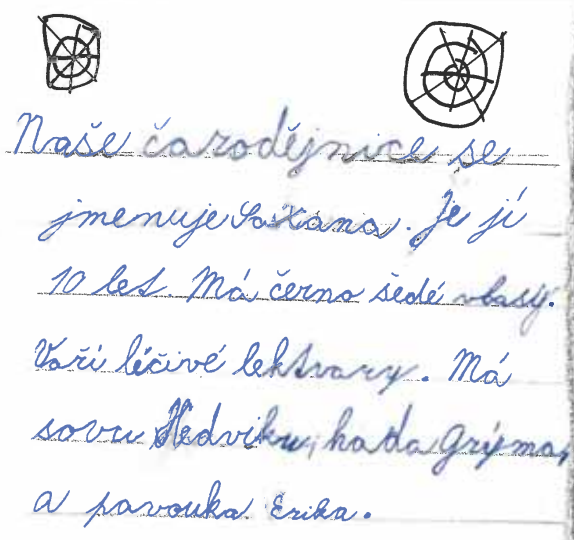 Naše čarodějnice se
jmenuje Saxana. Je jí
10 let. Má černo šedé vlasy.
Vaří léčivé lektvary. Má
sovu Hedviku, hada Grýma,
a pavouka Erika.